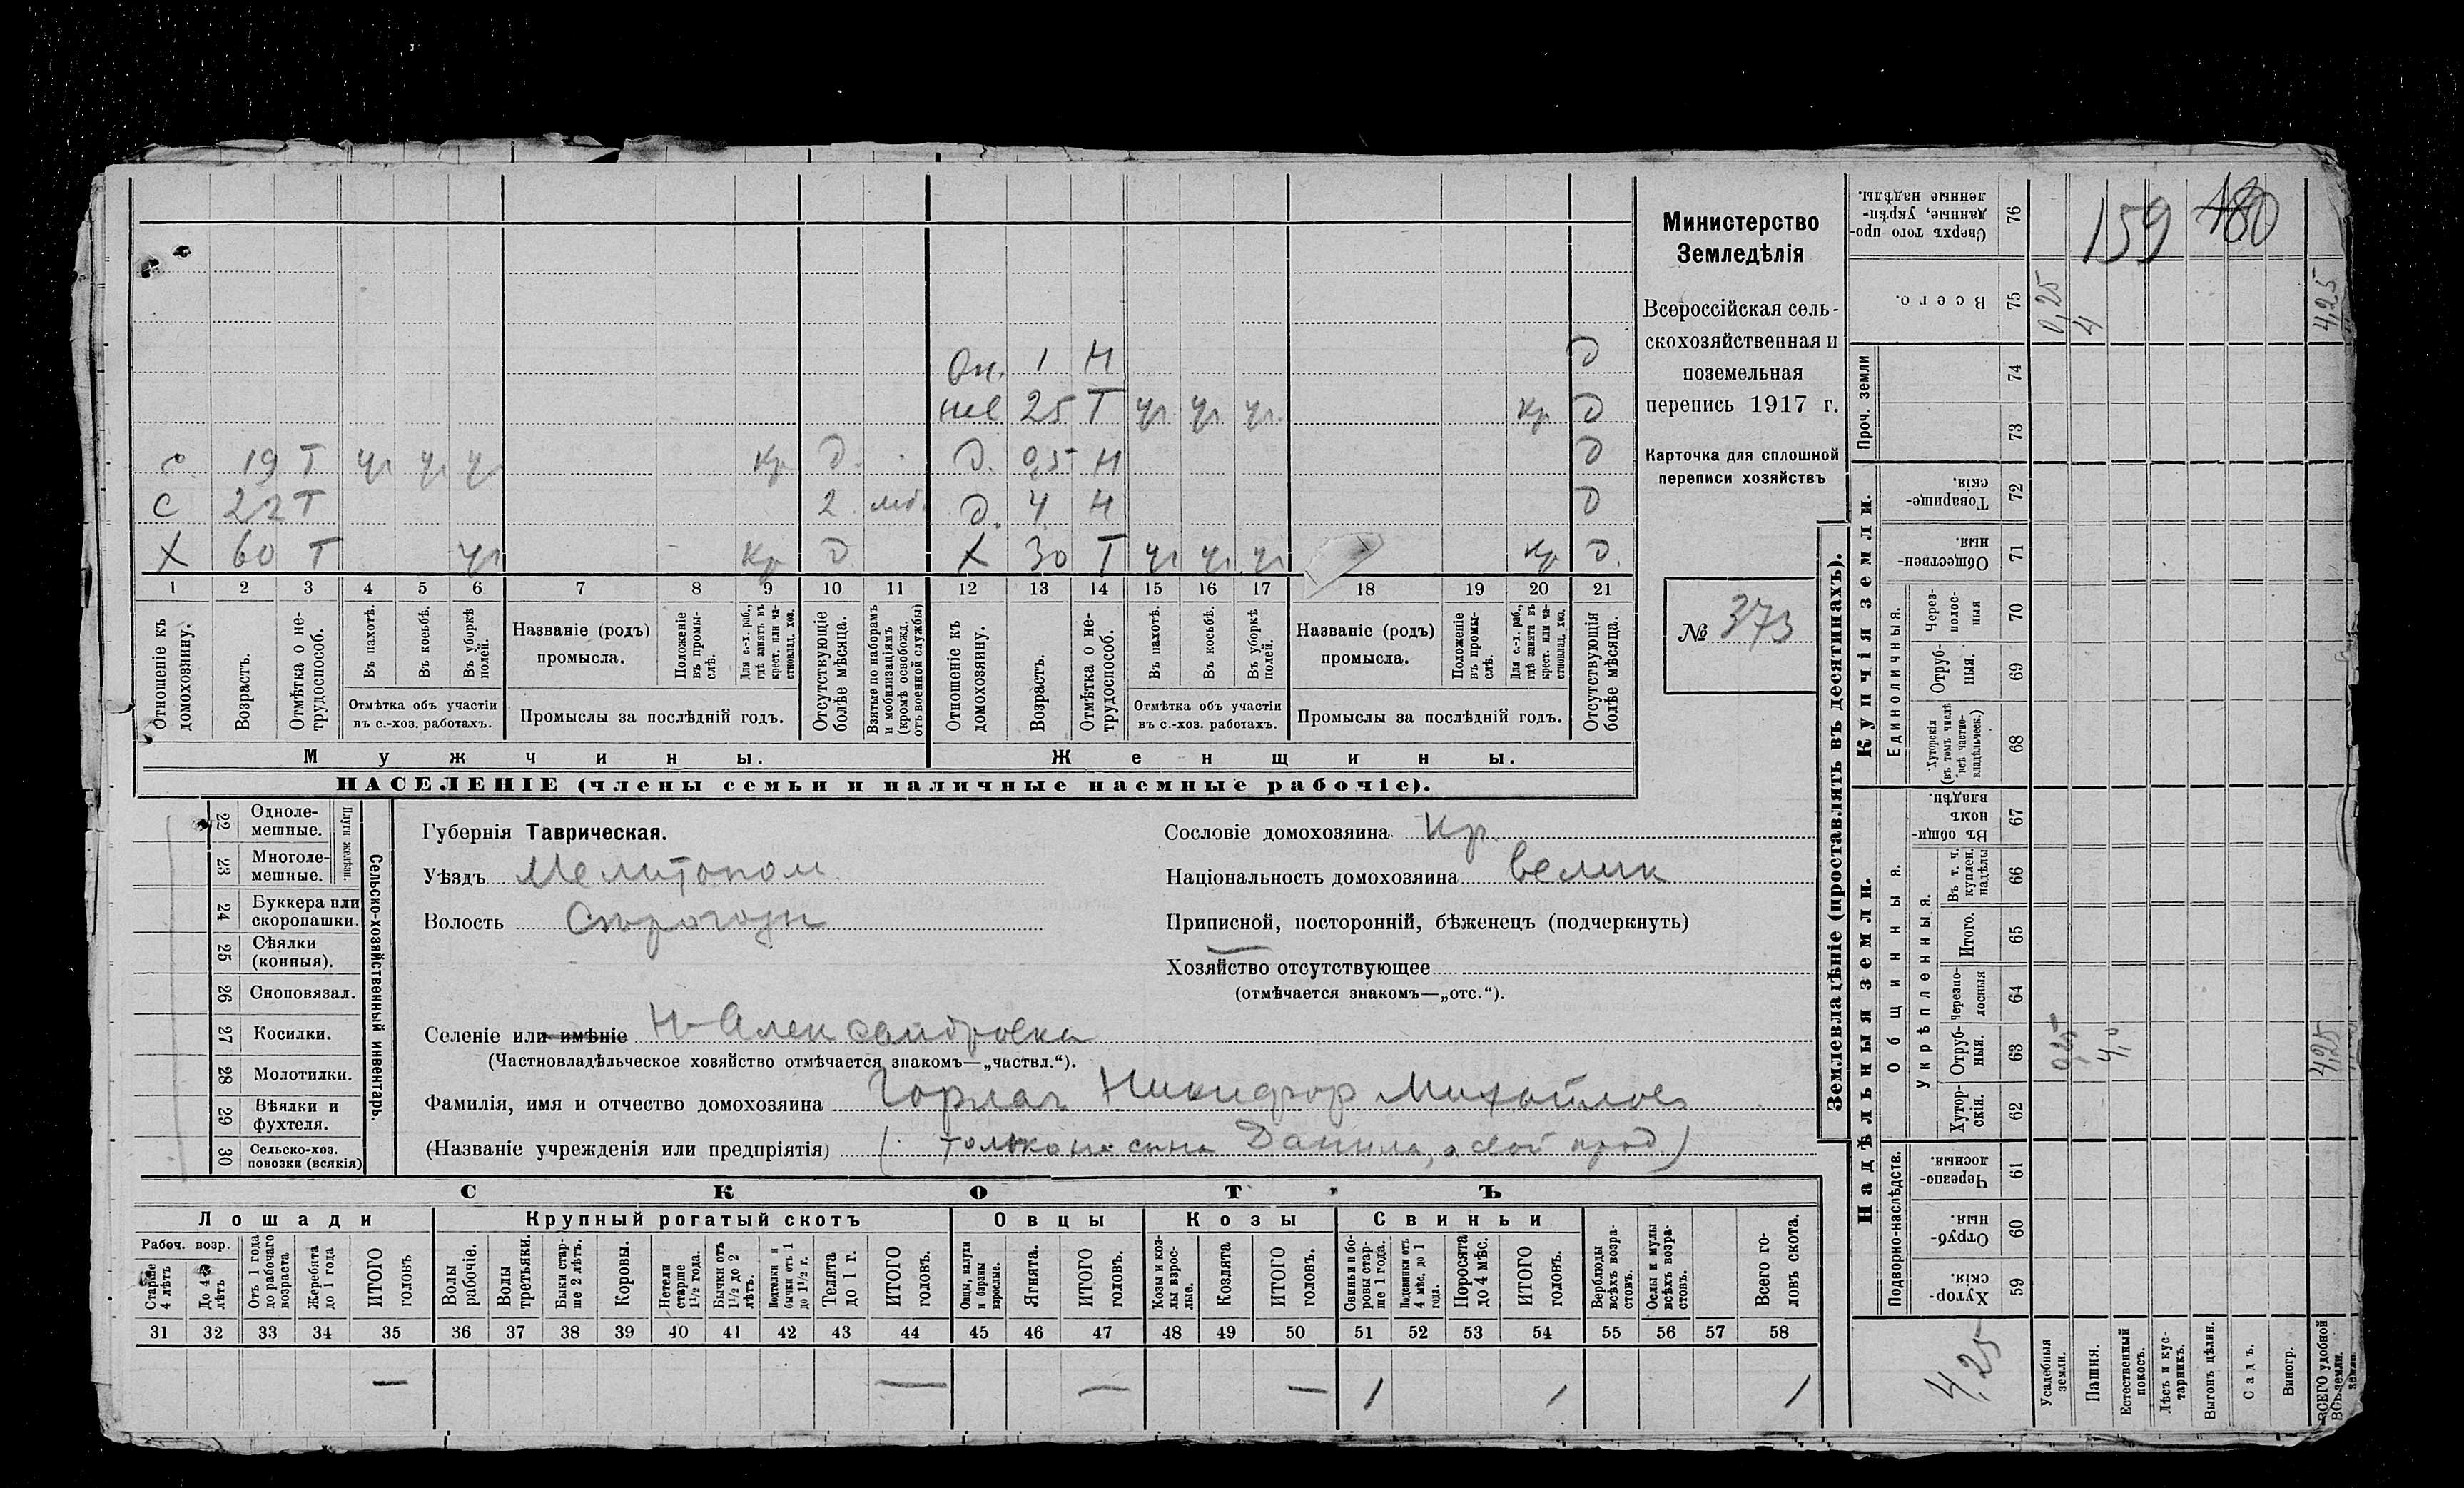 Он. 1 Н Д
нев 25 Т уч уч уч. кр Д
с 19 Т уч уч уч кр Д. Д. 0,5 Н Д
С 22 Т 2 моб. Д. 4 Н Д
Х 60 Т уч кр Д Х 30 Т уч уч уч кр Д.
1 2 3 4 5 6 7 8 9 10 11 12 13 14 15 16 17 18 19 20 21
Отношеніе къ домохозяину.
Возрастъ.
Отмѣтка о не-трудоспособ.
Въ пахотѣ.
Въ косьбѣ.
Въ уборкѣ полей.
Отмѣтка объ участіи
въ с.-хоз. работахъ.
Названіе (родъ)
промысла.
Положеніе въ промы-слѣ.
Для с.-х. раб., гдѣ занятъ въ крест. или ча-стновлад. хоз.
Промыслы за послѣдній годъ.
Отсутствующіе болѣе мѣсяца.
Взятые по наборамъ и мобилизаціямъ (кромѣ освобожд. отъ военной службы)
Отношеніе къ домохозяину.
Возрастъ.
Отмѣтка о не-трудоспособ.
Въ пахотѣ.
Въ косьбѣ.
Въ уборкѣ полей.
Отмѣтка объ участіи
въ с.-хоз. работахъ.
Названіе (родъ)
промысла.
Положеніе въ промы-слѣ.
Для с.-х. раб., гдѣ занята въ крест. или ча-стновлад. хоз.
Промыслы за послѣдній годъ.
Отсутствующія болѣе мѣсяца.
Мужчины. Женщины.
НАСЕЛЕНІЕ (члены семьи и наличные наемные рабочіе).
Министерство
Земледѣлія
Всероссійская сель-
скохозяйственная и
поземельная
перепись 1917 г.
Карточка для сплошной
переписи хозяйствъ
№ 373
22 Одноле-мешные.
23 Многоле-мешные.
Плуги желѣзн.
24 Буккера или скоропашки.
25 Сѣялки (конныя).
26 Сноповязал.
27 Косилки.
28 Молотилки.
29 Вѣялки и фухтеля.
30 Сельско-хоз. повозки (всякія)
Сельско-хозяйственный инвентарь.
Губернія Таврическая.
Уѣздъ Мелитопол
Волость Сѣрогозы
Селеніе или имѣніе Н-Александровка
(Частновладѣльческое хозяйство отмѣчается знакомъ—„частвл.“).
Фамилія, имя и отчество домохозяина Горлач Никифор Михайлов
(Названіе учрежденія или предпріятія) (только на сына Данила, а свой прод.)
Сословіе домохозяина кр.
Національность домохозяина велик
Приписной, посторонній, бѣженецъ (подчеркнуть)
Хозяйство отсутствующее
(отмѣчается знакомъ—„отс.“).
СКОТЪ
Лошади Крупный рогатый скотъ Овцы Козы Свиньи
Рабоч. возр.
Старше 4 лѣтъ
До 4 лѣтъ
Отъ 1 года до рабочаго возраста
Жеребята до 1 года
ИТОГО головъ
Волы рабочіе.
Волы третьяки.
Быки стар-ше 2 лѣтъ.
Коровы.
Нетели старше 1½ года.
Бычки отъ 1½ до 2 лѣтъ.
Подтелки и бычки отъ 1 до 1½ г.
Телята до 1 г.
ИТОГО головъ.
Овцы, валухи и бараны взрослые.
Ягнята.
ИТОГО головъ.
Козы и коз-лы взрос-лые.
Козлята
ИТОГО головъ.
Свиньи и бо-ровы стар-ше 1 года.
Подсвинки отъ 4 мѣс. до 1 года.
Поросята до 4 мѣс.
ИТОГО головъ.
Верблюды всѣхъ возра-стовъ.
Ослы и мулы всѣхъ возра-стовъ.
Всего го-ловъ скота.
31 32 33 34 35 36 37 38 39 40 41 42 43 44 45 46 47 48 49 50 51 52 53 54 55 56 57 58
— — — — 1 1 1
Землевладѣніе (проставлять въ десятинахъ).
Надѣльныя земли. Купчія земли. Проч. земли
Подворно-наслѣдств.
Общинныя.
Укрѣпленныя.
Единоличныя.
Хутор-скія. 59
Отруб-ныя. 60
Черезпо-лосныя. 61
Хутор-скія. 62
Отруб-ныя. 63 0,25 4,0 4,25
Черезпо-лосныя 64
Итого. 65
Въ т. ч. куплен. надѣлы 66
Въ общи-номъ владѣн. 67
Хуторскія (въ томъ числѣ всѣ частно-владѣльческ.) 68
Отруб-ныя. 69
Через-полос-ныя 70
Обществен-ныя. 71
Товарище-скія. 72
73
74
Всего. 75 0,25 4 4,25
Сверхъ того про-данные, укрѣп-ленные надѣлы. 76
159 180
4,25
Усадебныя земли.
Пашня.
Естественный покосъ.
Лѣсъ и кус-тарникъ.
Выгонъ цѣлин.
Садъ.
Виногр.
ВСЕГО удобной земли.